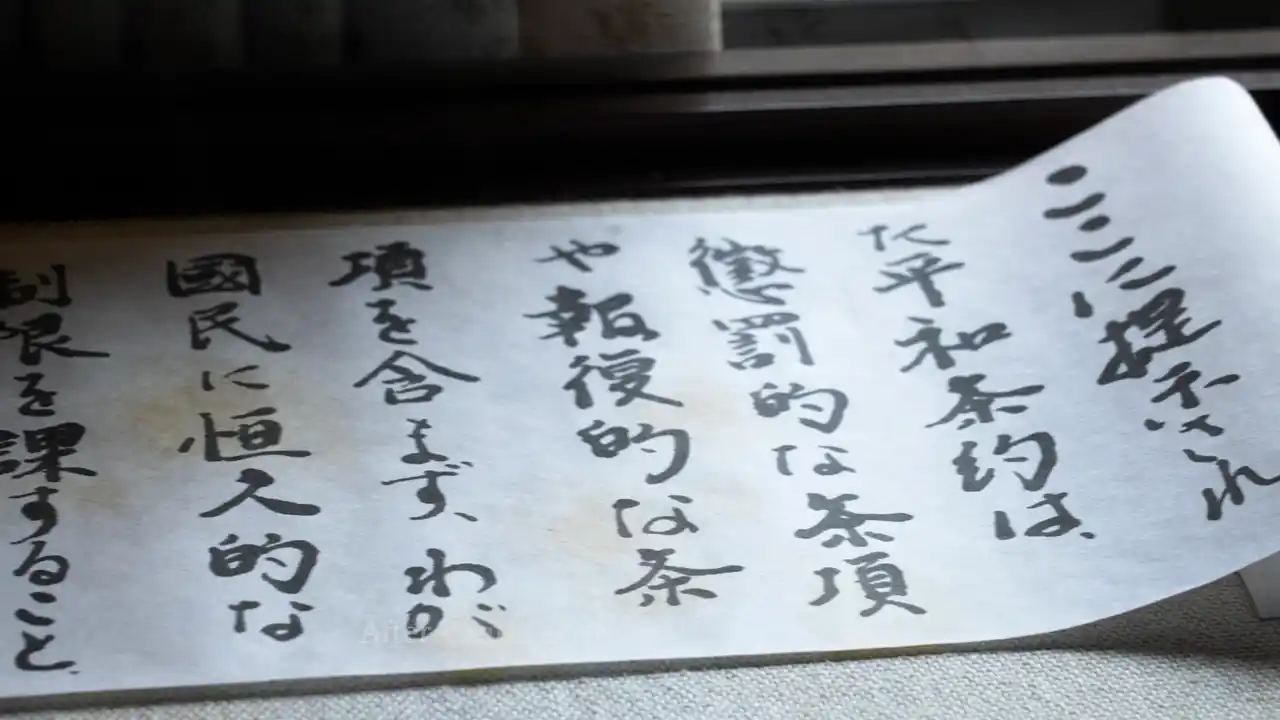 ここに提示され
た平和条約は、
懲罰的な条項
や報復的な条
項を含まず、わが
國民に恒久的な
制限を課すること、